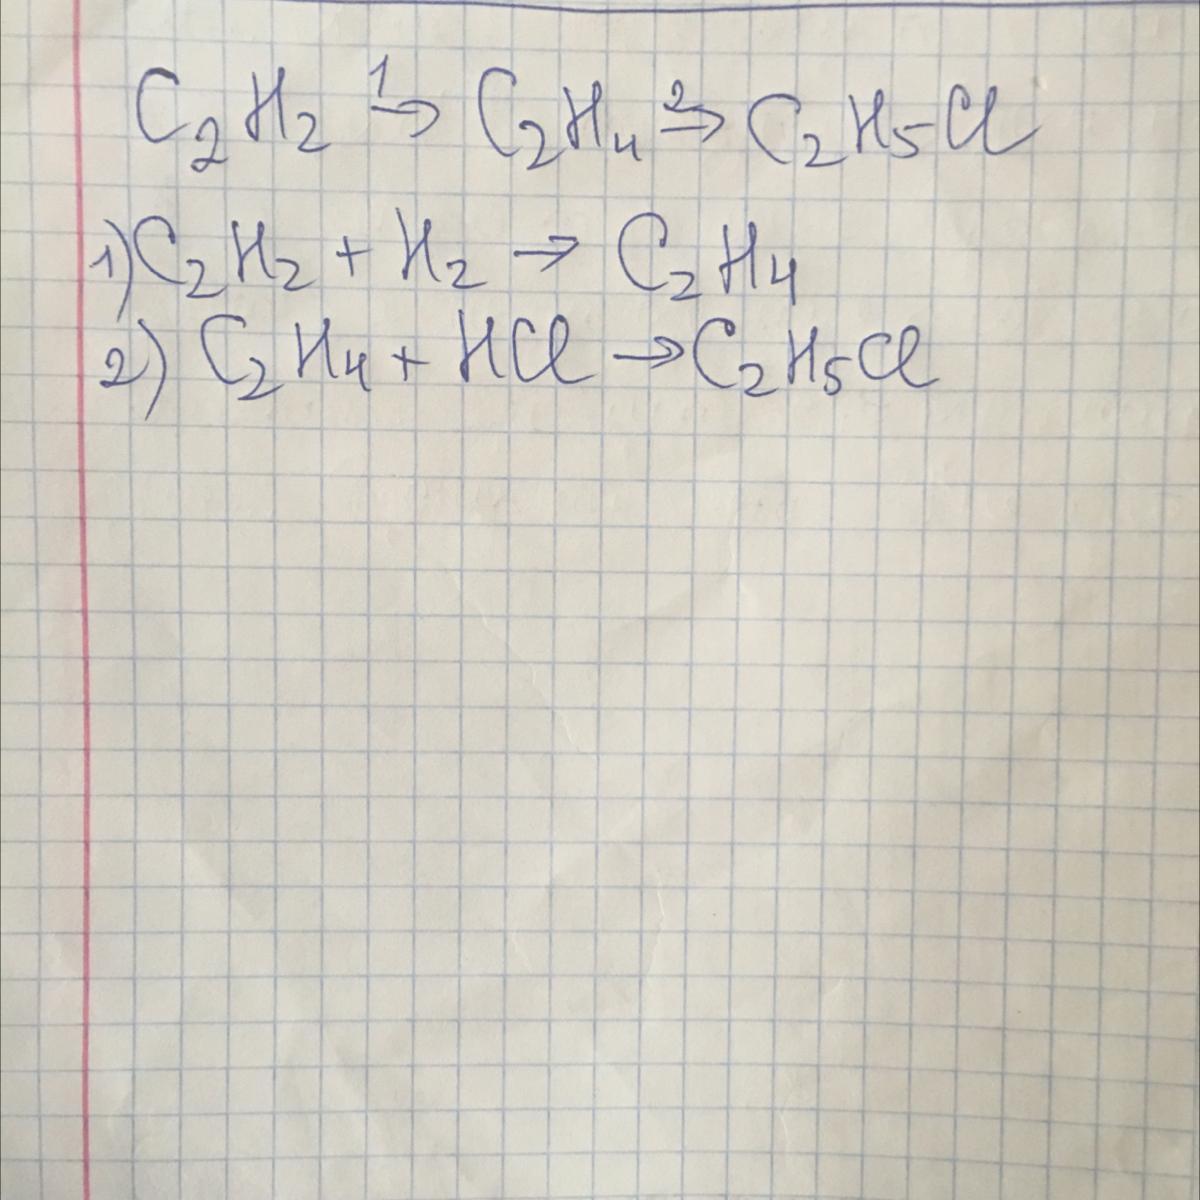 C₂H₂ →¹ C₂H₄ →² C₂H₅Cl
1) C₂H₂ + H₂ → C₂H₄
2) C₂H₄ + HCl → C₂H₅Cl